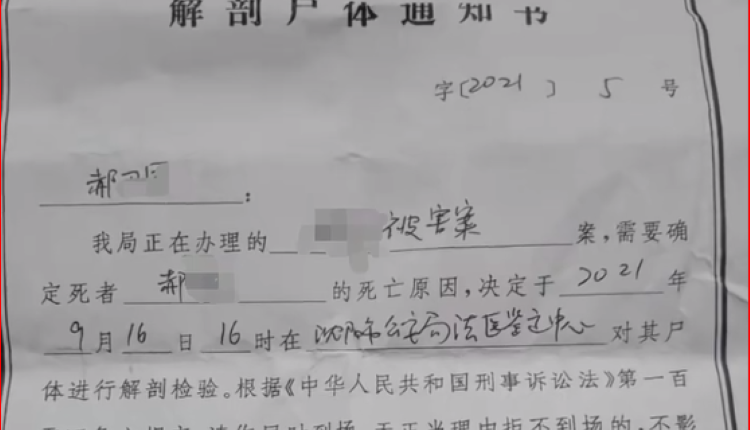 解剖尸体通知书
字〔2021〕5号
郝
：
我局正在办理的 被害案 案，需要确
定死者 郝 的死亡原因，决定于 2021 年
9月16日16时在 沈阳市公安局法医学中心 对其尸
体进行解剖检验。根据《中华人民共和国刑事诉讼法》第一百